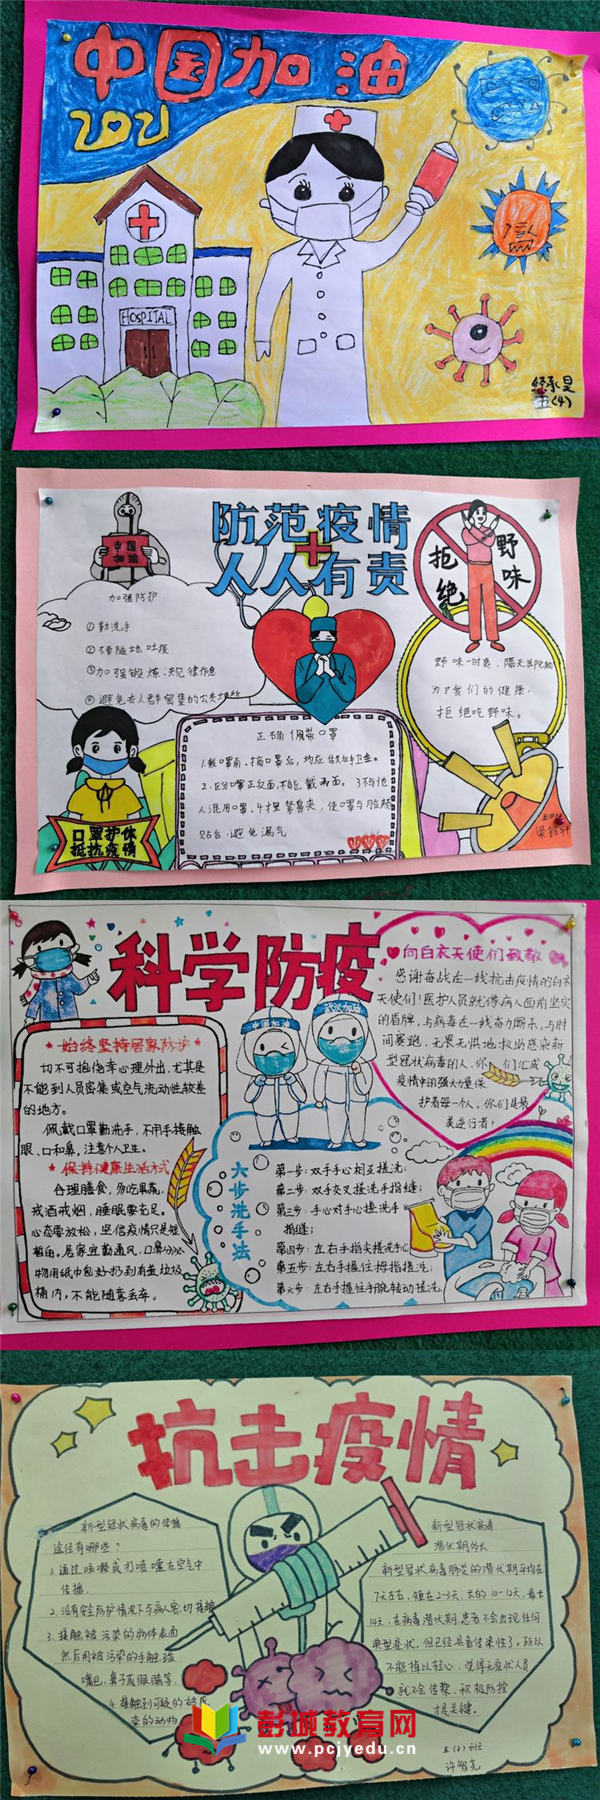 中国加油
2021
HOSPITAL
五(4)
防范疫情
人人有责
中国
加油
拒绝
野味
加强防护
①勤洗手
②不要随地吐痰
③加强锻炼、规律作息
④避免去人群密集的公共场所
野味一时爽,隔天医院躺
为了我们的健康,
拒绝吃野味。
正确佩带口罩
1.戴口罩前、摘口罩后,均应做好手卫生。
2.区分口罩正反面,不能戴两面。 3.不与他
人混用口罩,4.才捏紧鼻夹,使口罩与脸颊
贴合,避免漏气
口罩护体
抵抗疫情
科学防疫
向白衣天使们致敬
感谢奋战在一线抗击疫情的白衣
天使们!医护人员就像病人面前坚实
的盾牌,与病毒在一线奋力厮杀,与时
间赛跑,无畏无惧地救助感染新
型冠状病毒的人,你们汇成
疫情中的强大力量保
护着每一个人,你们是最
美逆行者!
中国加油
武汉加油
始终坚持居家防护
切不可抱侥幸心理外出,尤其是
不能到人员密集或空气流动性较差
的地方。
佩戴口罩勤洗手,不用手接触
眼、口和鼻,注意个人卫生。
保持健康生活方式
合理膳食,多吃果蔬,
戒酒戒烟,睡眠要充足。
心态要放松,坚信疫情只是短
暂的。居家宜勤通风,口鼻分泌
物用纸巾包好扔到有盖垃圾
桶内,不能随意丢弃。
六步洗手法
第一步:双手手心相互搓洗;
第二步:双手交叉搓洗手指缝;
第三步:手心对手心搓洗手
指缝;
第四步:左右手指尖搓洗手心
第五步:左右手握住拇指搓洗;
第六步:左右手握住手腕转动搓洗;
抗击疫情
新型冠状病毒的传播
途径有哪些?
1.通过咳嗽或打喷嚏在空气中
传播.
2.没有安全防护情况下与病人密切接触
3.接触被污染的物体表面
然后用被污染的手触碰
嘴巴、鼻子或眼睛等.
4.接触到可疑的被感
染的动物
新型冠状病毒
潜伏期多久
新型冠状病毒肺炎的潜伏期平均在
7天左右,短在2-3天,长的10-12天,最长
14天,在病毒潜伏期,患者不会出现任何
典型症状,但已经具备传染性了。所以
不能掉以轻心,觉得无症状人员
就不会传染,积极防控
才是关键。
五(2)班
许智亮
彭城教育网
www.pcjyedu.cn